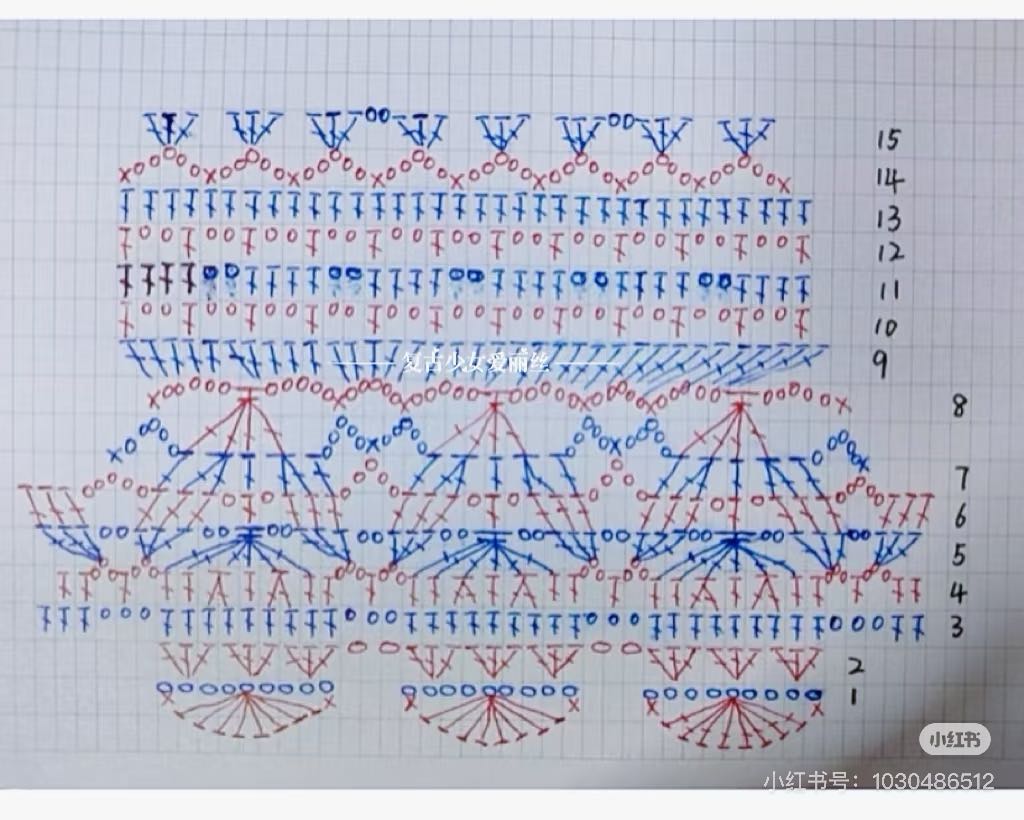 15
14
13
12
11
10
复古少女爱丽丝
9
8
7
6
5
4
3
2
1
小红书
小红书号：1030486512